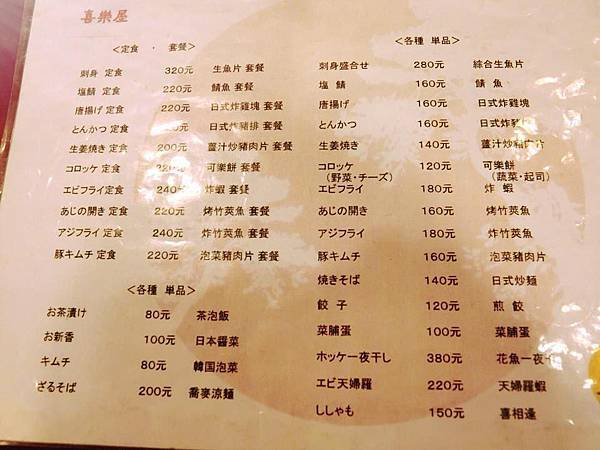 喜樂屋
＜定食 ・ 套餐＞
刺身 定食 320元 生魚片 套餐
塩鯖 定食 220元 鯖魚 套餐
唐揚げ 定食 220元 日式炸雞塊 套餐
とんかつ 定食 0元 日式炸豬排 套餐
生姜焼き 定食 200元 薑汁炒豬肉片 套餐
コロッケ 定食 220元 可樂餅 套餐
エビフライ 定食 240元 炸蝦 套餐
あじの開き 定食 220元 烤竹莢魚 套餐
アジフライ 定食 240元 炸竹莢魚 套餐
豚キムチ 定食 220元 泡菜豬肉片 套餐
＜各種 単品＞
お茶漬け 80元 茶泡飯
お新香 100元 日本醬菜
キムチ 80元 韓国泡菜
ざるそば 200元 蕎麥涼麵
＜各種 單品＞
刺身盛合せ 280元 綜合生魚片
塩 鯖 160元 鯖 魚
唐揚げ 160元 日式炸雞塊
とんかつ 160元 日式炸豬
生姜焼き 140元 薑汁炒豬肉片
コロッケ 120元 可樂餅
（野菜・チーズ） （蔬菜・起司）
エビフライ 180元 炸 蝦
あじの開き 160元 烤竹莢魚
アジフライ 180元 炸竹莢魚
豚キムチ 160元 泡菜豬肉片
焼きそば 140元 日式炒麵
餃 子 120元 煎 餃
菜脯蛋 100元 菜脯蛋
ホッケ一夜干し 380元 花魚一夜干
エビ天婦羅 220元 天婦羅蝦
ししゃも 150元 喜相逢